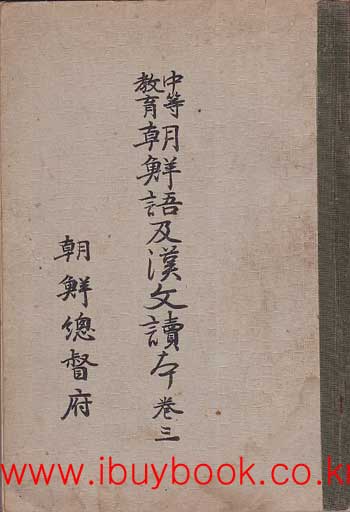 中等
教育
朝鮮語及漢文讀本 卷三
朝鮮總督府
www.ibuybook.co.kr